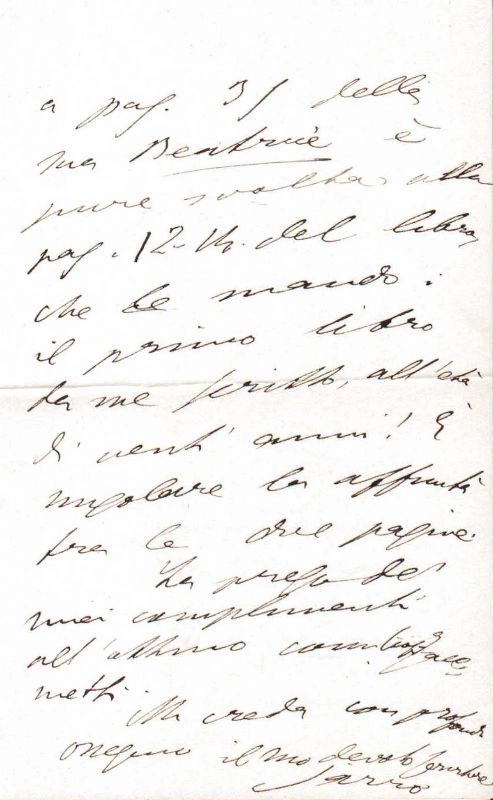 a pag. 31 della
sua Beatrice è
pure svolta alla
pag. 12-14. del libro,
che Le mando:
il primo libro
da me scritto, all'età
di venti anni! È
singolare la affinità
fra le due pagine.
La prego de'
miei complimenti
all'ottimo
Mi creda con profondo
ossequio il suo devoto servitore